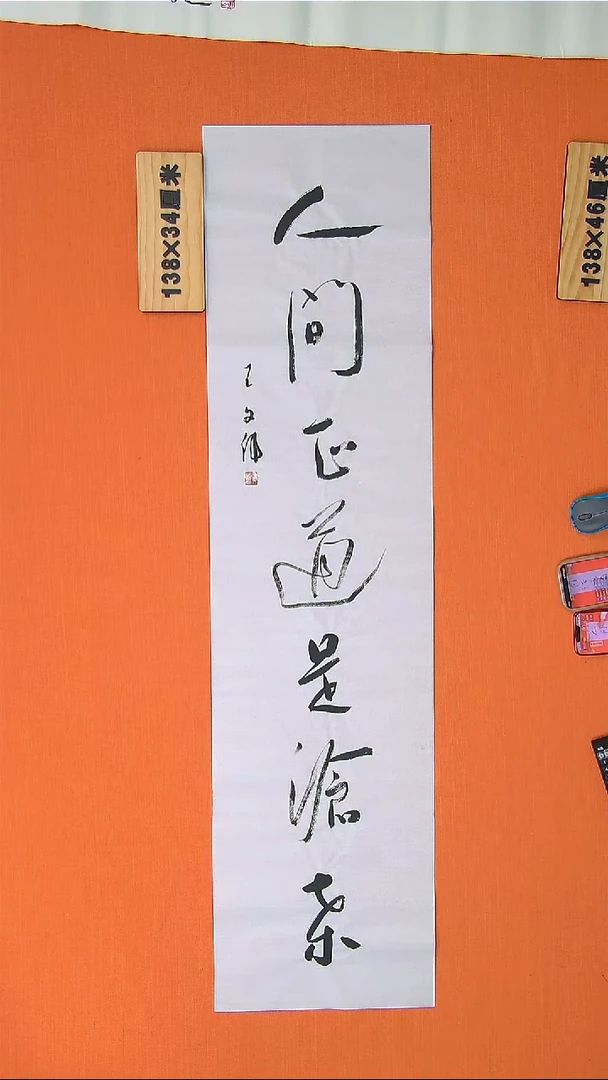 人间正道是滄桑
王文伟
138×34厘米
138×46厘米